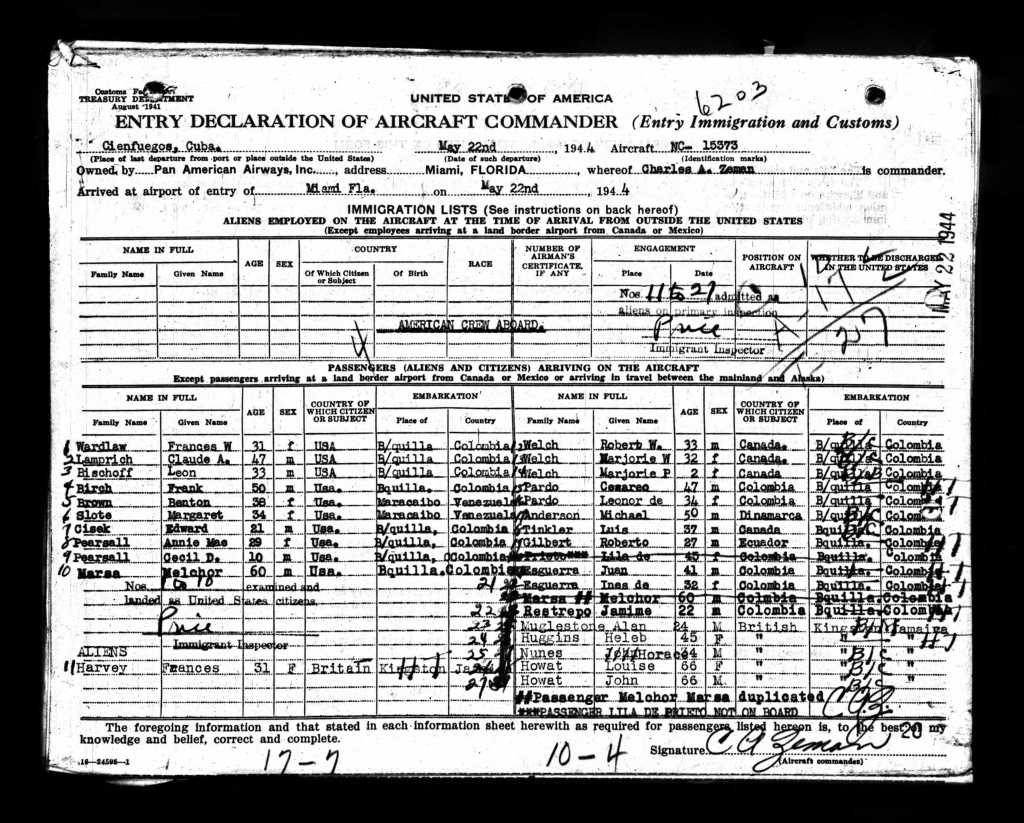 Customs Fo
TREASURY DE TMENT
August 1941
UNITED STATES OF AMERICA
6203
ENTRY DECLARATION OF AIRCRAFT COMMANDER (Entry Immigration and Customs)
Cienfuegos, Cuba. May 22nd, 1944 Aircraft NC- 15373
(Place of last departure from port or place outside the United States) (Date of such departure) (Identification marks)
Owned by Pan American Airways, Inc., address Miami, FLORIDA, whereof Charles A. Zeman is commander.
Arrived at airport of entry of Miami Fla. on May 22nd, 1944
IMMIGRATION LISTS (See instructions on back hereof)
ALIENS EMPLOYED ON THE AIRCRAFT AT THE TIME OF ARRIVAL FROM OUTSIDE THE UNITED STATES
(Except employees arriving at a land border airport from Canada or Mexico)
MAY 22 1944
NAME IN FULL AGE SEX COUNTRY RACE NUMBER OF AIRMAN'S CERTIFICATE, IF ANY ENGAGEMENT POSITION ON AIRCRAFT WHETHER TO BE DISCHARGED IN THE UNITED STATES
Family Name Given Name Of Which Citizen or Subject Of Birth Place Date
Nos 11 to 27 admitted as
aliens on primary inspection
A-17
27
AMERICAN CREW ABOARD.
Price
Immigrant Inspector
PASSENGERS (ALIENS AND CITIZENS) ARRIVING ON THE AIRCRAFT
Except passengers arriving at a land border airport from Canada or Mexico or arriving in travel between the mainland and Alaska)
NAME IN FULL AGE SEX COUNTRY OF WHICH CITIZEN OR SUBJECT EMBARKATION NAME IN FULL AGE SEX COUNTRY OF WHICH CITIZEN OR SUBJECT EMBARKATION
Family Name Given Name Place of Country Family Name Given Name Place of Country
1 Wardlaw Frances W 31 f USA B/quilla Colombia Welch Robert W. 33 m Canada. B/quilla Colombia
2 Lamprich Claude A. 47 m USA B/quilla Colombia Welch Marjorie W 32 f Canada. B/quilla Colombia
3 Bischoff Leon 33 m USA B/quilla Colombia Welch Marjorie P 2 f Canada B/quilla Colombia
4 Birch Frank 50 m Usa. Bquilla. Colombia Pardo Cesareo 47 m Colombia B/quilla Colombia
5 Brown Benton 38 f Usa. Maracaibo Venezuela Pardo Leonor de 34 f Colombia B/quilla Colombia
6 Slote Margaret 34 f Usa. Maracaibo Venezuela Anderson Michael 50 m Dinamarca B/quilla Colombia
7 Cisek Edward 21 m Usa. B/quilla, Colombia Tinkler Luis 37 m Canada Bquilla Colombia
8 Pearsall Annie Mae 29 f Usa. B/quilla, Colombia Gilbert Roberto 27 m Ecuador Bquilla. Colombia
9 Pearsall Cecil D. 10 m Usa. B/quilla, Colombia Prieto*** Lila de 45 f Colombia Bquilla. Colombia
10 Marsa Melchor 60 m Usa. Bquilla. Colombia Esguerra Juan 41 m Colombia Bquilla. Colombia
Nos. 1 to 10 examined and 21 Esguerra Ines de 32 f Colombia Bquilla. Colombia
landed as United States citizens. Marsa ## Melchor 60 m Colmbia Bquilla. Colombia
22 Restrepo Jamime 22 m Colombia Bquilla. Colombia
Price 23 Muglestone Alan 24 M British Kingston Jamaica
Immigrant Inspector 24 Huggins Heleb 45 F " " "
ALIENS 25 Nunes Horace 64 M " " "
11 Harvey Frances 31 F Britain Kingston Ja 26 Howat Louise 66 F " " "
27 Howat John 66 M " " "
##Passenger Melchor Marsa duplicated
***PASSENGER LILA DE PRIETO NOT ON BOARD
CAZ.
The foregoing information and that stated in each information sheet herewith as required for passengers listed hereon is, to the best of my
knowledge and belief, correct and complete.
20
Signature C A Zeman
(Aircraft commander)
16—24595—1
17-7 10-4